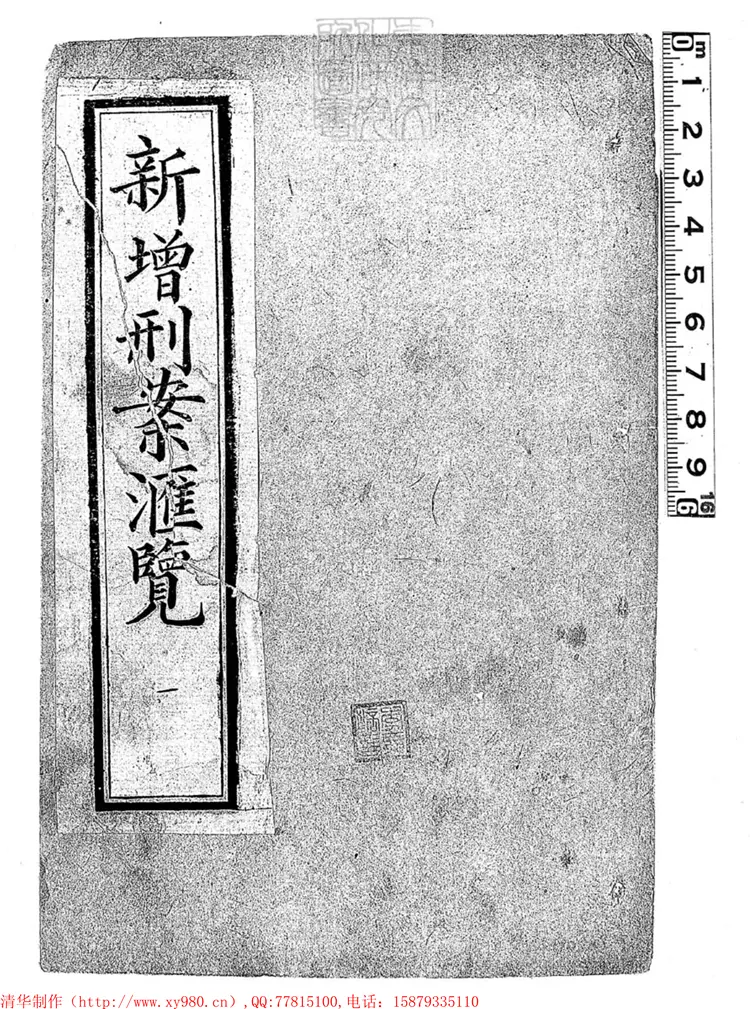 新增刑案滙覽
一
m
0
1
2
3
4
5
6
7
8
9
清华制作（http://www.xy980.cn）,QQ:77815100,电话：15879335110